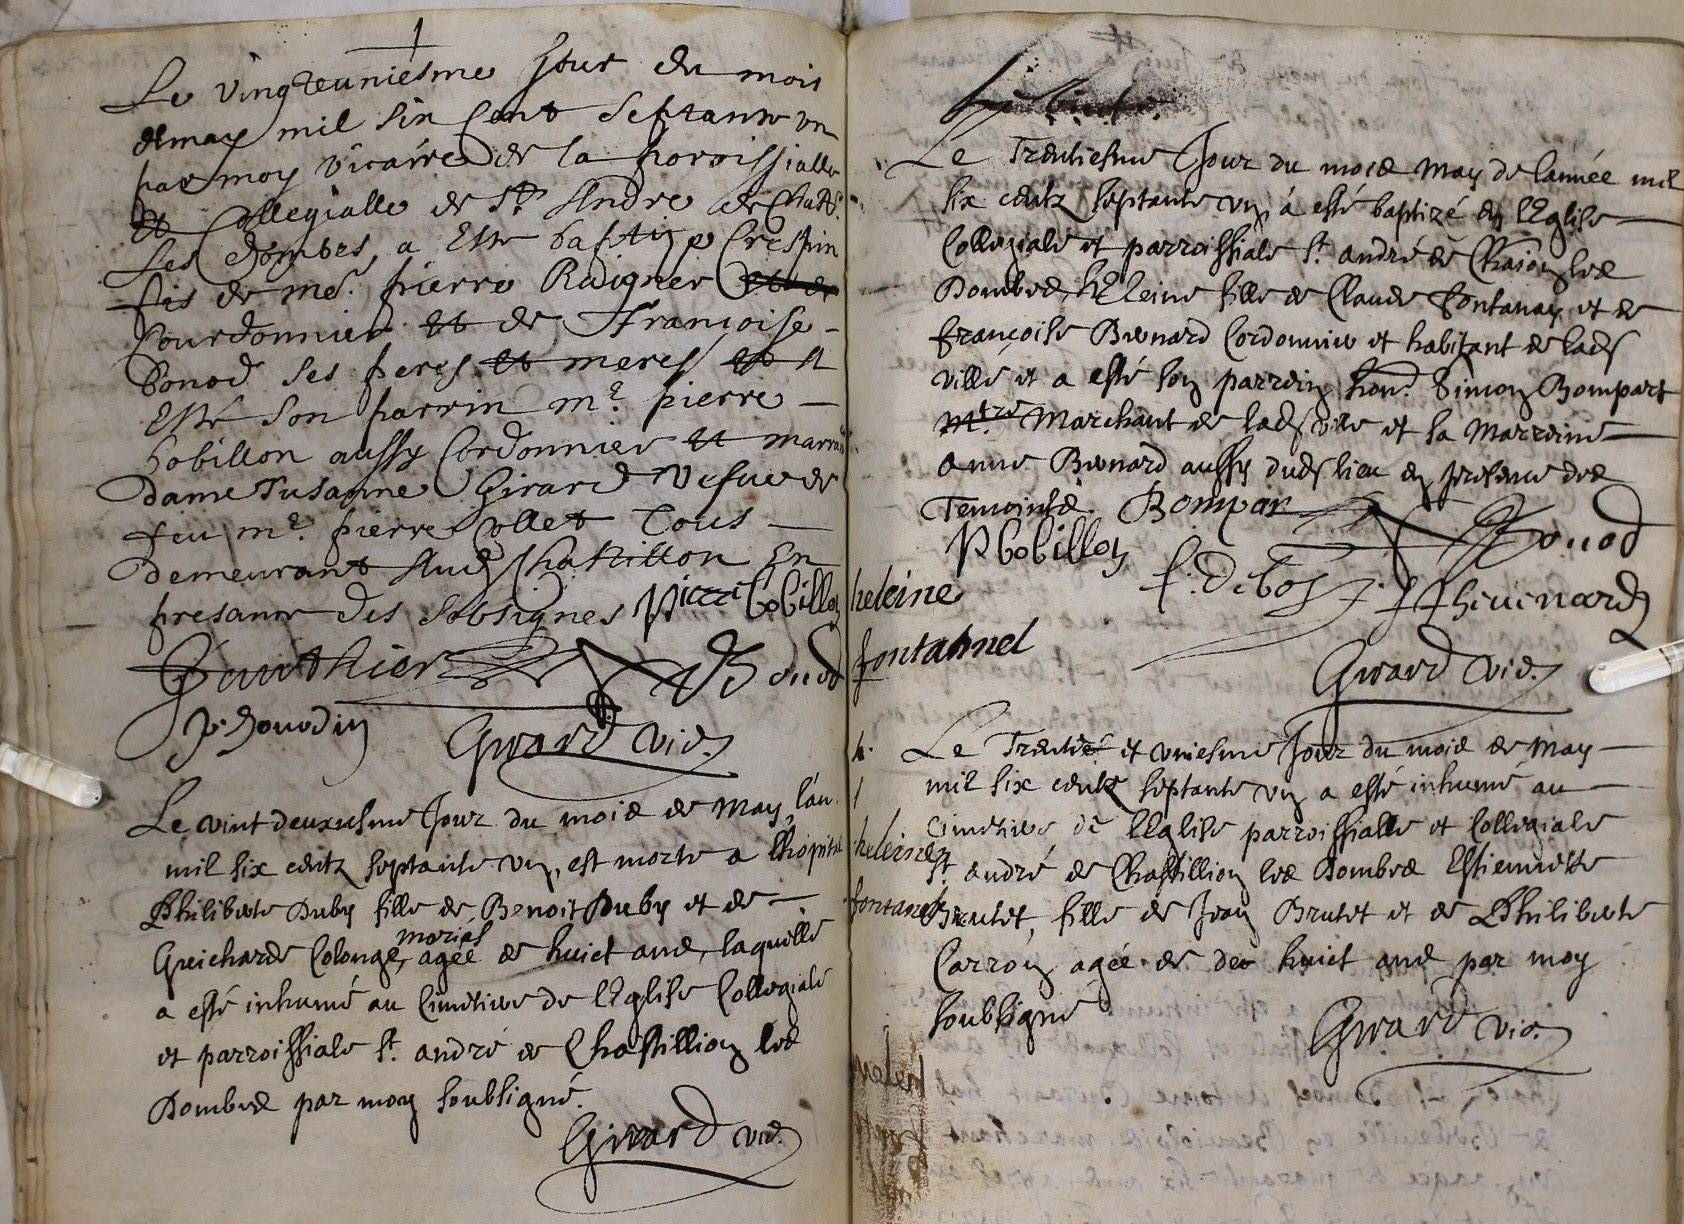 1
Le vingteuniesme Jour du mois
de may mil six Cent Septante un
par moy vicaire de la paroissialle
et Collegialle de St Andre de Chatt.
Les dombes, a Este baptize Crespin
fis de me. pierre Ruignier et de
Courdonnier et de Francoise
Bonod ses peres et meres et a
Esté Son parrin mr. pierre
bobillon aussy Cordonnier et marrine
dame Susanne Girard vefue de
feu mr. pierre Collet Tous
demeurant Aud Chatillon En
presance des Sobsignes Pierre Bobillon
Gauthier Bonod
Girard vic.
Le vint deuxiesme Jour du mois de May, l'an
mil six centz septante un, est morte a l'hopital
Philiberte Duby fille de Benoit Duby et de
maries
Guicharde Colonge, agée de huict ans, laquelle
a esté inhumé au Cimetiere de l'Eglise Collegiale
et parroissiale St. andré de Chastillion les
Dombes par moy soubsigné.
Girard vic.
Le Trentiesme Jour du mois May de l'année mil
six centz septante un, a esté baptizé en l'Eglise
Collegiale et parroissiale St. andré de Chaion les
Dombes, heleine fille de Claude fontanay et de
françoise Bernard Cordonnier et habitant de lad
ville et a esté son parrein hon. Simon Bompart
Mtre Marchant de lad ville et la Marreine
anne Bernard aussy dud lieu en presence des
Temointz. Bompar Bonod
P bobillon
f. Debost Thevenard
heleine
fontannel
Girard vic.
Le Trente et uniesme Jour du mois de May
mil six centz septante un a esté inhumé au
cimetiere de l'Eglise parroissialle et Collegiale
heleine
St. andré de Chastillion les Dombes Estiennette
fontanel
Brutet, fille de Jean Brutet et de Philiberte
Carron agée de de huict ans par moy
soubsigné
Girard vic.